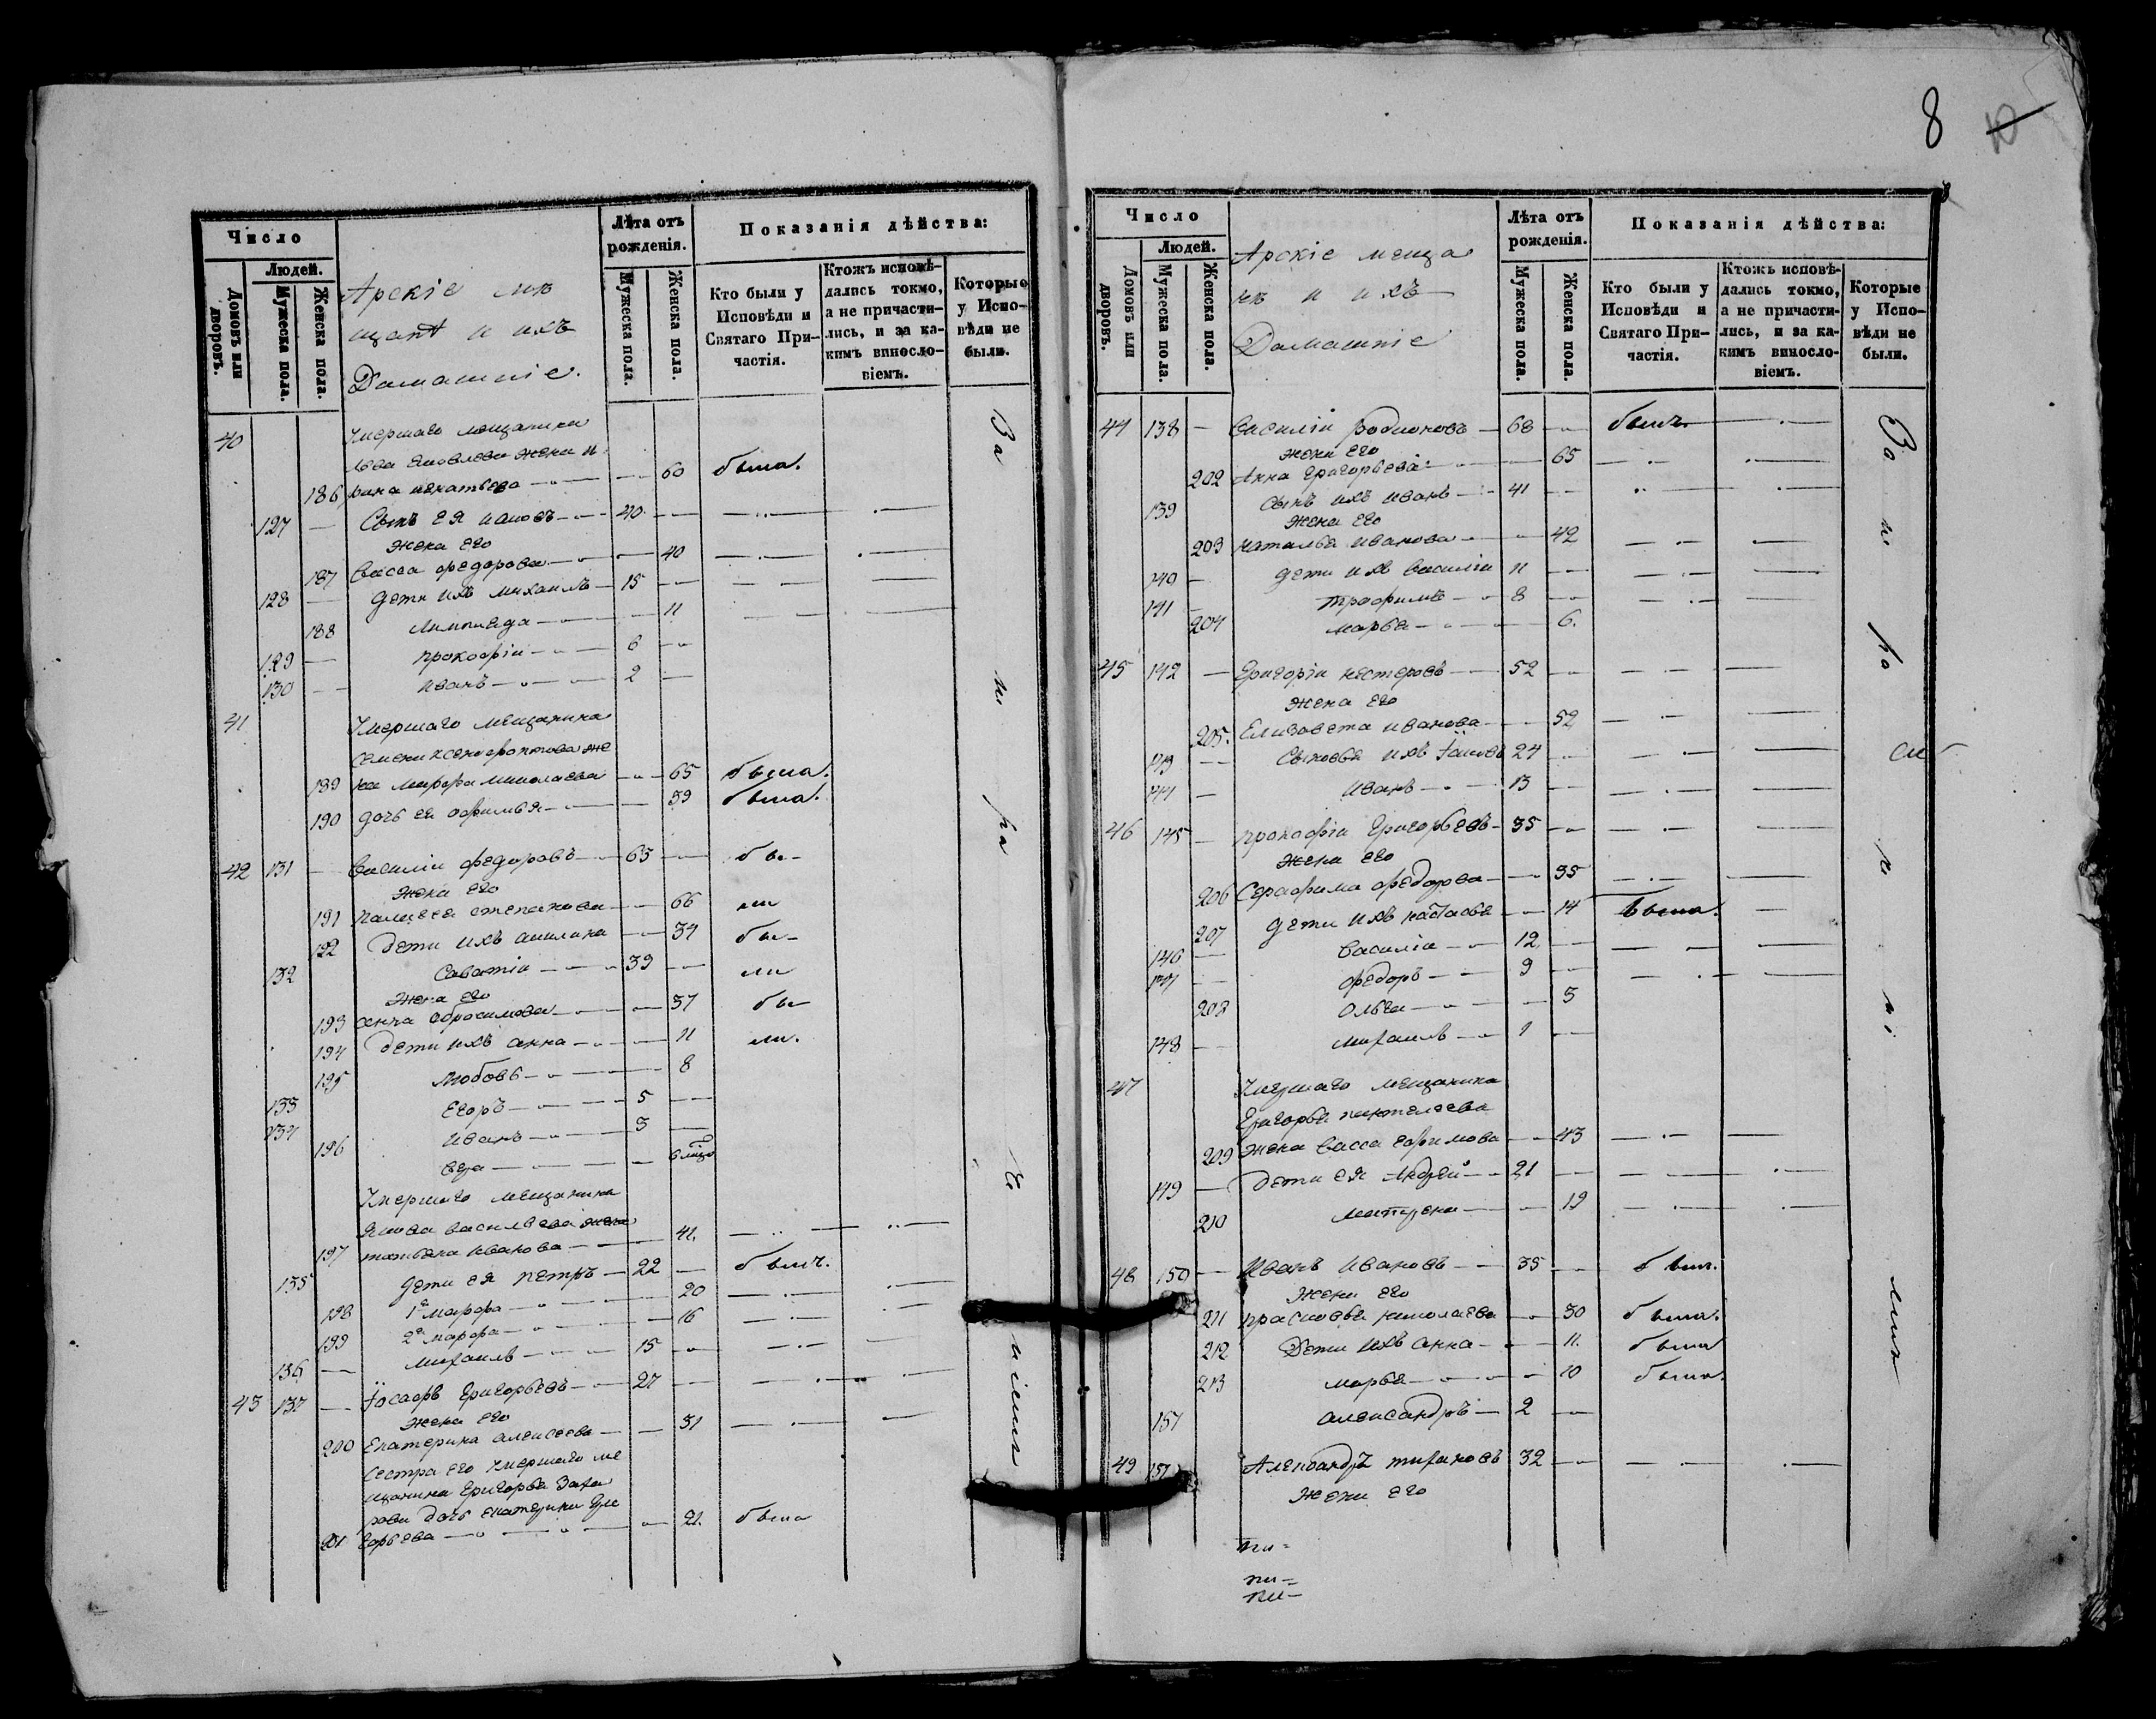 8
Число
Людей.
Домовъ или дворовъ.
Мужеска пола.
Женска пола.
Арскіе мѣ
щанѣ и ихъ
Домашніе.
Лѣта отъ рожденія.
Мужеска пола.
Женска пола.
Показанія дѣйства:
Кто были у Исповѣди и Святаго Причастія.
Ктожъ исповѣдались токмо, а не причастились, и за какимъ винословіемъ.
Которые у Исповѣди не были.
40 Умершаго мещанина
Льва Яковлева жена И
186 рина игнатьева 60 была.
127 Сынъ ея 40
жена его
187 Васса федорова 40
128 Дети ихъ михаилъ 15
188 11
129 прокофіи 6
130 иванъ 2
41 Умершаго мещанина
Семена ксенофонтова же
189 на марфа николаева 65 была.
190 дочь ея 39 была.
42 131 Василіи федоровъ 65 бы-
жена его
191 степанова 66 ли
192 Дети ихъ акилина 34 бы-
132 Саватіи 39 ли
жена его
193 анна 37 бы-
194 Дети ихъ анна 11 ли.
195 Любовь 8
133 Егоръ 5
134 Иванъ 3
196
Умершаго мещанина
Якова васильева жена
197 татьяна иванова 41.
135 Дети ея петръ 22 былъ.
198 1я марфа 20
199 2я марфа 16
136 михаилъ 15
43 137 Іосафъ Григорьевъ 27
жена его
200 Екатерина алексеева 31
Сестра его Умершаго ме
щанина Григорья Заха
рова дочь екатерина Гри
201 горьева 21. была
Число
Людей.
Домовъ или дворовъ.
Мужеска пола.
Женска пола.
Арскіе меща
нѣ и ихъ
Домашніе
Лѣта отъ рожденія.
Мужеска пола.
Женска пола.
Показанія дѣйства:
Кто были у Исповѣди и Святаго Причастія.
Ктожъ исповѣдались токмо, а не причастились, и за какимъ винословіемъ.
Которые у Исповѣди не были.
44 138 Василіи Родионовъ 68 былъ.
жена его
202 Анна Григорьева 65
139 Сынъ ихъ иванъ 41
жена его
203 наталья иванова 42
140 Дети ихъ василіи 11
141 трофимъ 8
204 марья 6.
45 142 Григоріи нестеровъ 52
жена его
205. Елизавета иванова 52
143 Сыновья ихъ Іаковъ 24
144 Иванъ 13
46 145 прокофіи Григорьевъ 35
жена его
206 Серафима федорова 35
207 Дети ихъ настасья 14 была.
146 василіи 12
147 федоръ 9
208 Ольга 3
148 михаилъ 1
47 Умершаго мещанина
Григорья пантелеева
209 жена васса ефимова 43
149 Дети ея Андреи 21
210 матрена 19
48 150 Иванъ Ивановъ 35 былъ.
жена его
211 прасковья николаева 30 была.
212 Дети ихъ анна 11. была
213 марья 10 была.
151 александръ 2
49 Александръ тихановъ 32
жена его